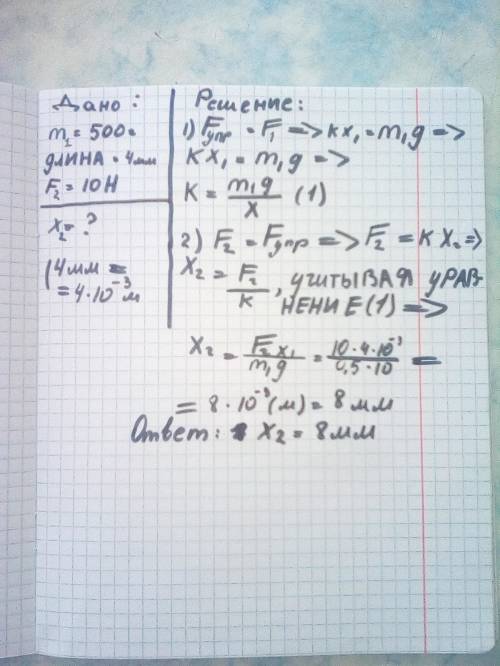 Дано:
m₁ = 500г
длина = 4мм
F₂ = 10 Н
x₂ = ?
(4мм =
= 4·10⁻³ м
Решение:
1) Fупр = F₁ => кx₁ = m₁g =>
Kx₁ = m₁g =>
K = m₁g / x (1)
2) F₂ = Fупр => F₂ = K x₂ =>
x₂ = F₂ / к, учитывая урав-
нение (1) =>
x₂ = F₂ x₁ / m₁g = 10·4·10⁻³ / 0,5·10 =
= 8·10⁻³ (м) = 8 мм
Ответ: x₂ = 8мм